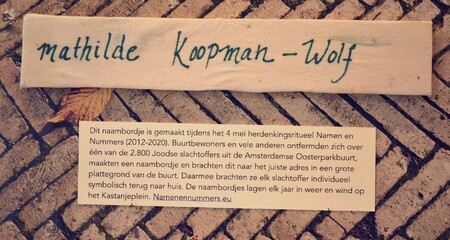 mathilde Koopman – Wolf
Dit naambordje is gemaakt tijdens het 4 mei herdenkingsritueel Namen en
Nummers (2012-2020). Buurtbewoners en vele anderen ontfermden zich over
één van de 2.800 Joodse slachtoffers uit de Amsterdamse Oosterparkbuurt,
maakten een naambordje en brachten dit naar het juiste adres in een grote
plattegrond van de buurt. Daarmee brachten ze elk slachtoffer individueel
symbolisch terug naar huis. De naambordjes lagen elk jaar in weer en wind op
het Kastanjeplein. Namenennummers.eu